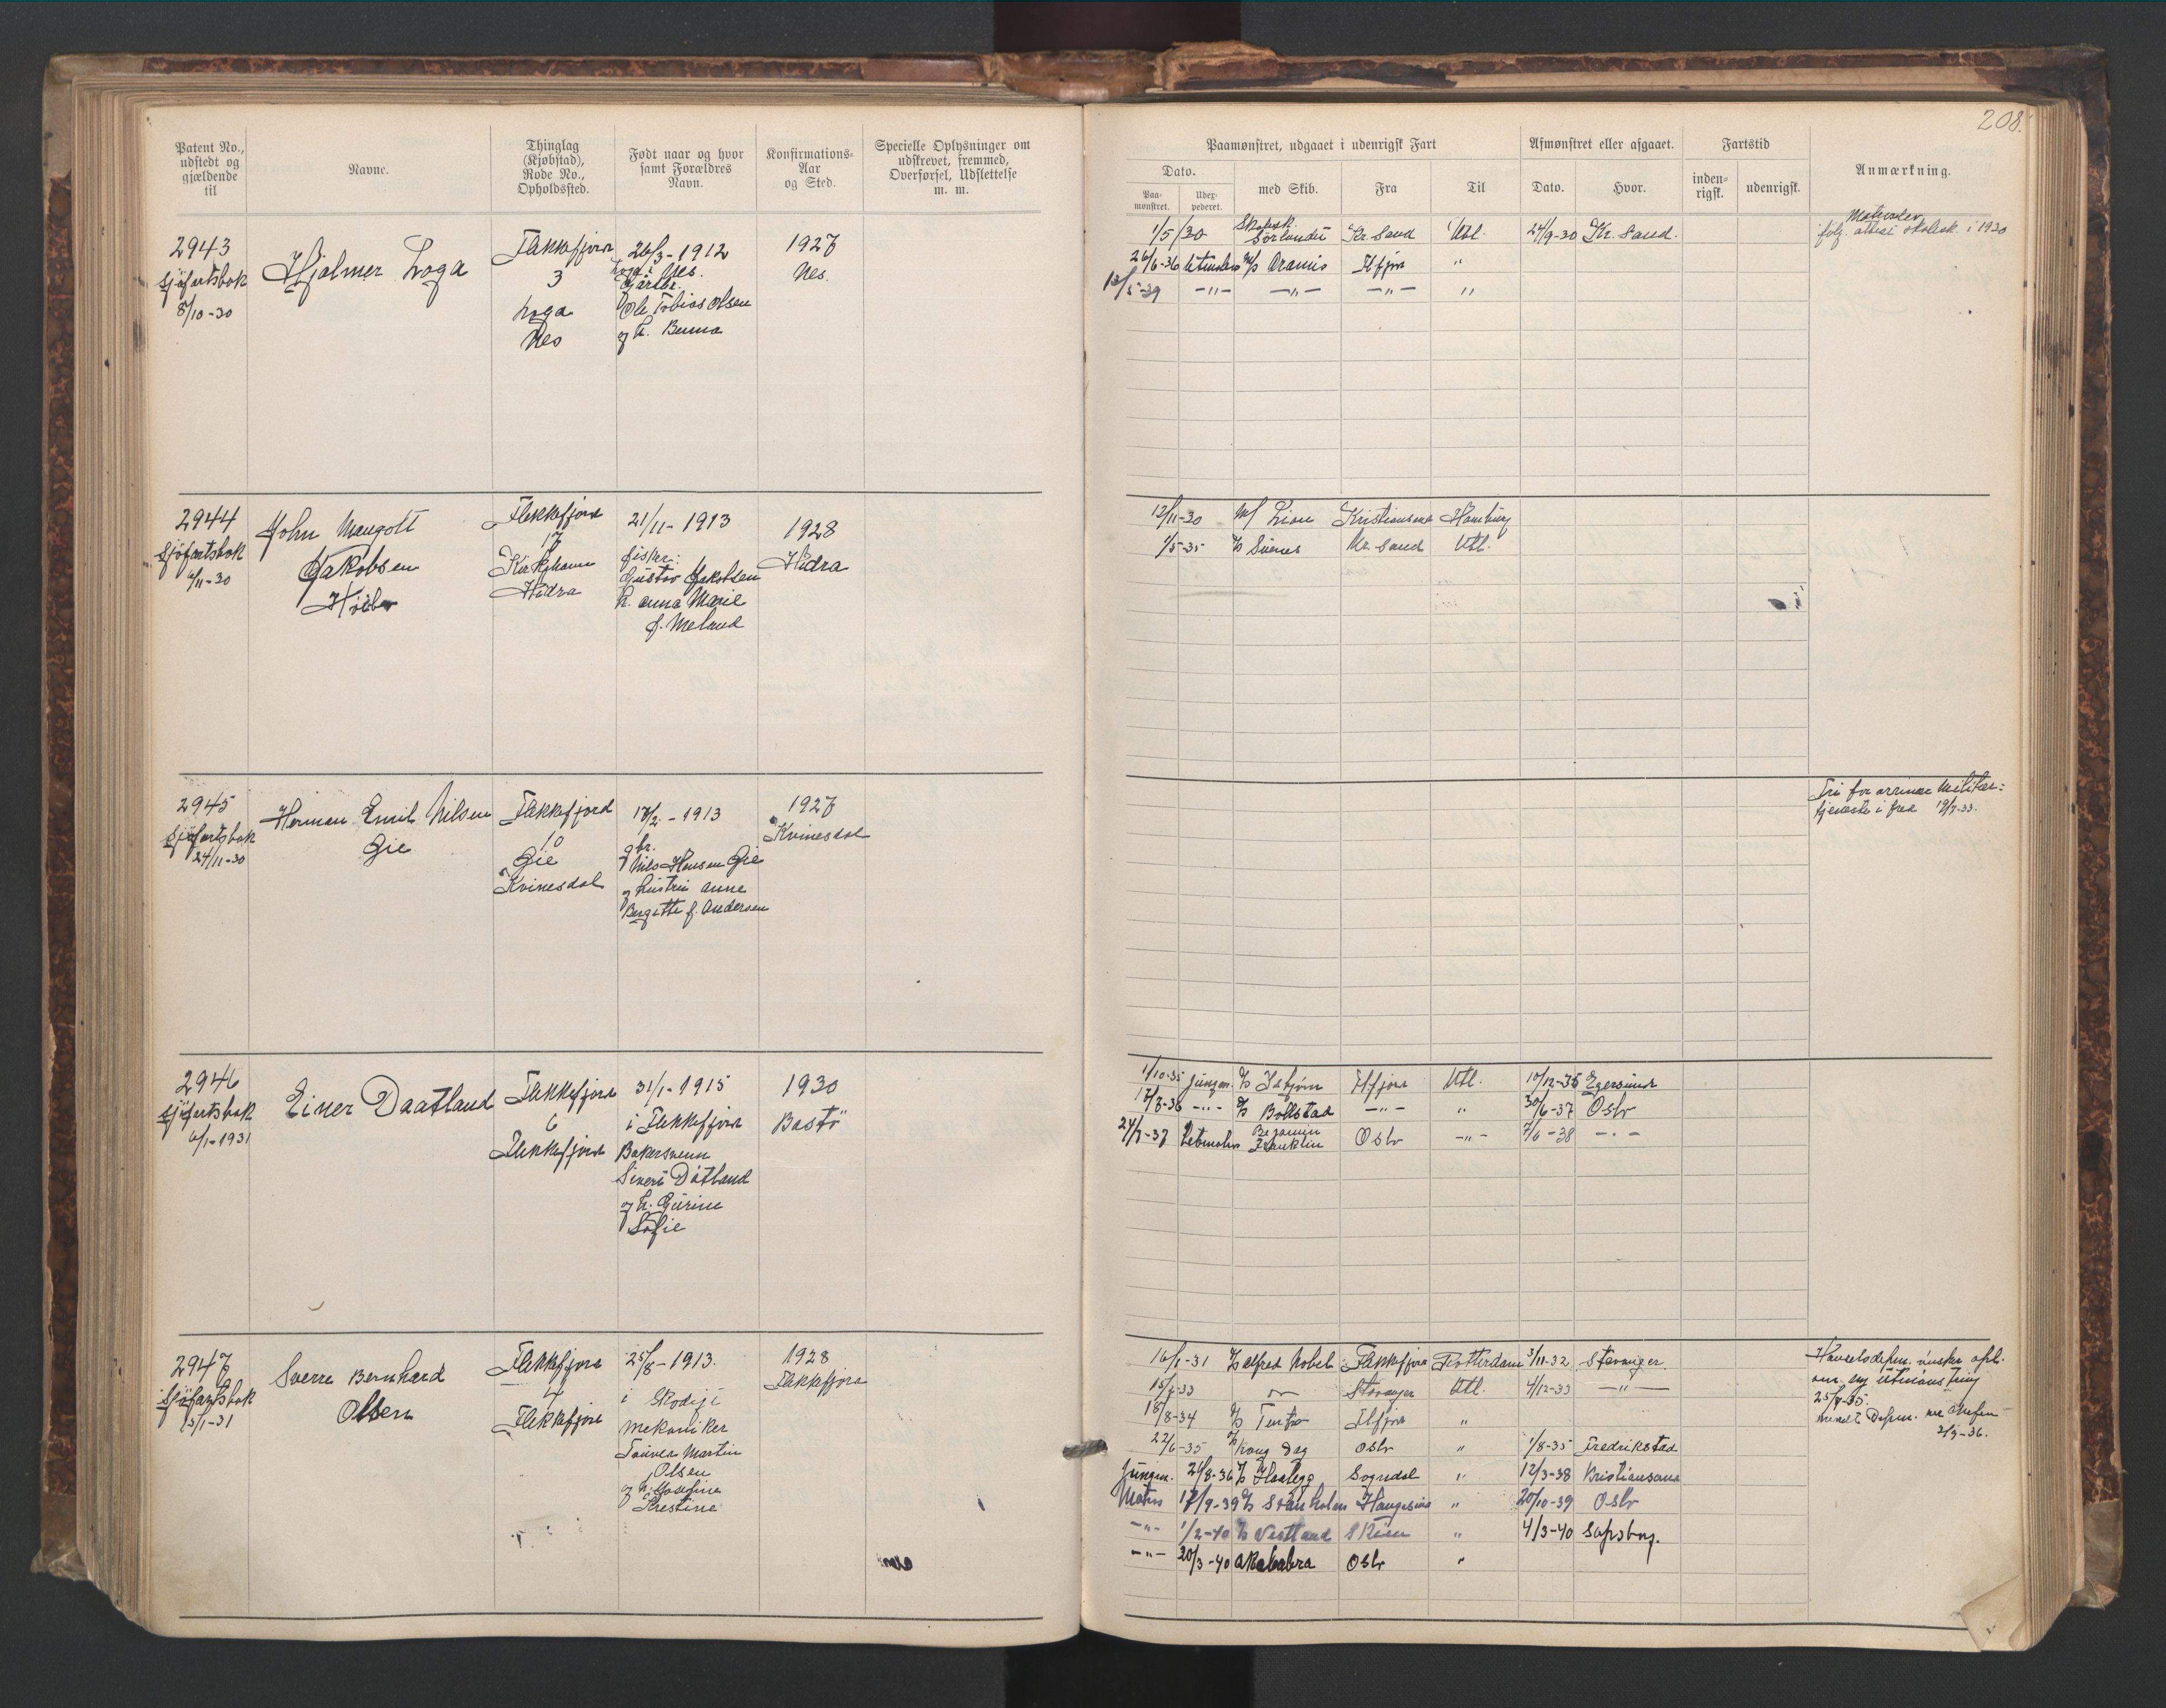 208.
Patent No., udstedt og gjældende til
Navne.
Thinglag (Kjøbstad), Rode No., Opholdssted.
Født naar og hvor samt Forældres Navn.
Konfirmations-Aar og Sted.
Specielle Oplysninger om udskrevet, fremmed, Overførsel, Udslettelse m. m.
Paamønstret, udgaaet i udenrigsk Fart
Dato.
Paa-mønstret.
Udex-pederet.
med Skib.
Fra
Til
Afmønstret eller afgaaet.
Dato.
Hvor.
Fartstid
inden-rigsk.
udenrigsk.
Anmærkning.
2943
Sjøfartsbok
8/10-30
Hjalmer Loga
Flekkefjord
3
Loga
Nes
26/3-1912
Loga i Nes.
Gårdbr.
Ole Tobias Olsen
og h. Berna
1927
Nes.
1/5/30 Skolesk. Sörlandet Kr. Sand Utl. 24/9-30 Kr. Sand.
26/6-36 Letmatros M/S Aramis Flfjord "
12/5-39 -"- -"- -"- "
Matroselev
ifölg. attest skolesk. i 1930
2944
Sjøfartsbok
6/11-30
John Maugott
Jakobsen
Flekkefjord
17
Kirkehavn
Hidra
21/11-1913
fisker:
Gustav Jakobsen
h. Anna Marie
f. Meland
1928
Hidra
12/11-30 M/ Lion Kristiansand Hamburg
1/5-35 Kr. Sand Utl.
2945
Sjøfartsbok
24/11-30
Herman Emil Nilsen
Gie
Flekkefjord
10
Gie
Kvinesdal
17/2-1913
gbr.
Nils Hansen Gie
og hustru Anne
Bergitte f. Andersen
1927
Kvinesdal
Fri for ordinær militær-
tjeneste i fred 19/7-33.
2946
Sjøfartsbok
6/1-1931
Einer Daatland
Flekkefjord
6
Flekkefjord
31/1-1915
i Flekkefjord
Bakersvenn
Sivert Dåtland
og h. Gurine
Sofie
1930
Bastö
1/10-35 Jungm. D/S Isbjørn Flfjord Utl. 10/12-35 Egersund
17/8-36 -"- D/S Bollstad -"- " 30/6-37 Oslo
24/7-37 Letmatros Benjamin Franklin Oslo -"- 7/6-38 -"-
2947
Sjøfartsbok
13/1-31
Sverre Bernhard
Olsen
Flekkefjord
4
Flekkefjord
25/8-1913.
i Skodje
mekaniker
Martin
Olsen
og h. Josefine
Prestine
1928
Flekkefjord
16/1-31 D/S Alfred Nobel Flekkefjord Rotterdam 3/11-32 Stavanger.
15/7-33 -"- Stavanger Utl. 4/12-33 -"-
18/8-34 D/S Tento Flfjord "
22/6-35 D/S Kong Dag Oslo " 1/8-35 Fredrikstad
Jungm. 21/8-36 D/S Haalegg Sogndal " 12/3-38 Kristiansand
Matros 17/9-39 D/S Svanholm Haugesund " 20/10-39 Oslo
-"- 1/2-40 D/S Vestland Skien " 4/3-40 Sarpsborg.
-"- 20/3-40 Akabahra Oslo "
Handelsdepm. ønsker opl.
om ny utmönstring
25/7-35.
meldt Depm. pr.
2/3-36.